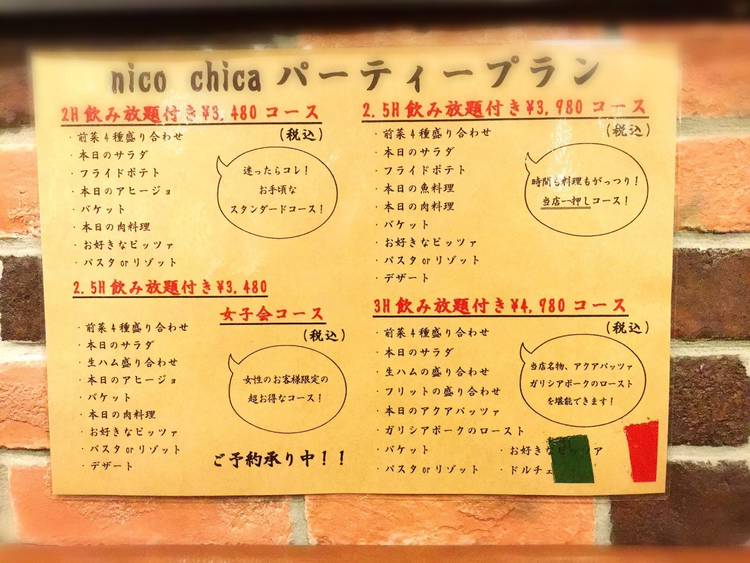 nico chica パーティープラン
2H飲み放題付き¥3,480 コース
(税込)
・前菜4種盛り合わせ
・本日のサラダ
・フライドポテト
・本日のアヒージョ
・バケット
・本日の肉料理
・お好きなピッツァ
・パスタorリゾット
迷ったらコレ!
お手頃な
スタンダードコース!
2.5H飲み放題付き¥3,980 コース
(税込)
・前菜4種盛り合わせ
・本日のサラダ
・フライドポテト
・本日の魚料理
・本日の肉料理
・バケット
・お好きなピッツァ
・パスタorリゾット
・デザート
時間も料理もがっつり!
当店一押しコース!
2.5H飲み放題付き¥3,480
女子会コース
(税込)
・前菜4種盛り合わせ
・本日のサラダ
・生ハム盛り合わせ
・本日のアヒージョ
・バケット
・本日の肉料理
・お好きなピッツァ
・パスタorリゾット
・デザート
女性のお客様限定の
超お得なコース!
ご予約承り中!!
3H飲み放題付き¥4,980 コース
(税込)
・前菜4種盛り合わせ
・本日のサラダ
・生ハムの盛り合わせ
・フリットの盛り合わせ
・本日のアクアパッツァ
・ガリシアポークのロースト
・バケット ・お好きなピッツァ
・パスタorリゾット ・ドルチェ
当店名物、アクアパッツァ
ガリシアポークのロースト
を堪能できます!